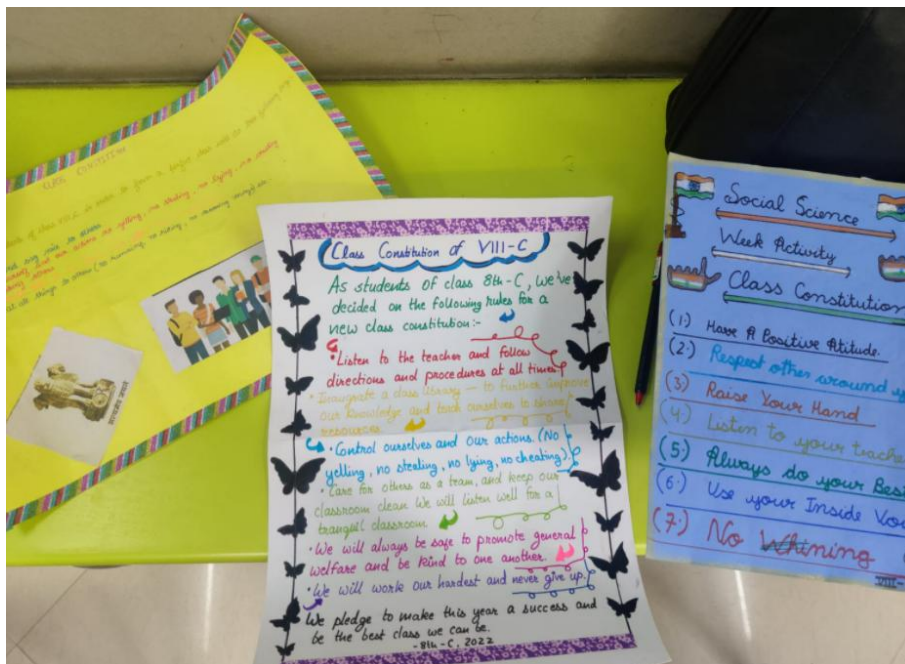 no yelling, no stealing, no lying, no cheating
Class Constitution of VIII-C
As students of class 8th-C, we've
decided on the following rules for a
new class constitution:-
• Listen to the teacher and follow
directions and procedures at all times.
• a class library – to further improve
our knowledge and teach ourselves to share
resources.
• Control ourselves and our actions (No
yelling, no stealing, no lying, no cheating).
• Care for others as a team, and keep our
classroom clean. We will listen well for a
tranquil classroom.
• We will always be safe to promote general
welfare and be kind to one another.
• We will work our hardest and never give up.
We pledge to make this year a success and
be the best class we can be.
-8th-C, 2022
Social Science
Week Activity
Class Constitution
(1.) Have A Positive Atitude.
(2.) Respect other around
(3) Raise Your Hand
(4.) Listen to your
(5.) Always do your Best
(6.) Use your Inside
(7.) No Whining
VIII-